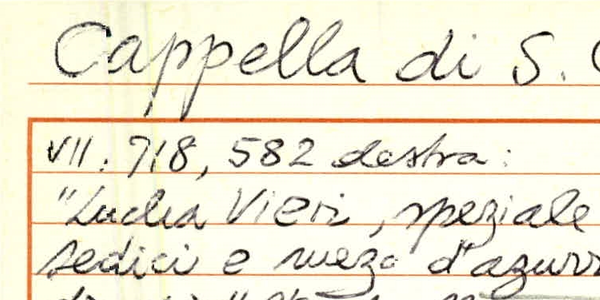 Cappella di S.
VII. 718, 582 destra:
Vieri, speziale
sedici e mezo d'azurr